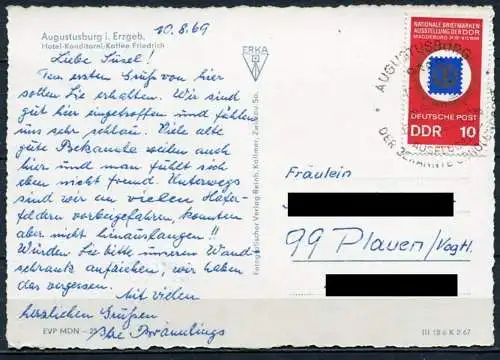 10.8.69
Augustusburg i. Erzgeb.
Hotel-Konditorei-Kaffee Friedrich
Liebe Süsel!
Den ersten Gruß von hier
sollen Sie erhalten. Wir sind
gut hier eingetroffen und fühlen
uns sehr schlau. Viele alte
gute Bekannte weilen auch
hier und man fühlt sich
eben nicht fremd. Unterwegs
sind wir an vielen Hafer-
feldern vorbeigefahren, konnten
aber nicht hinauslangen!!
Würden Sie bitte unseren Wand-
schrank aufziehen, wir haben
das vergessen.
Mit vielen
herzlichen Grüßen
Ihre
EVP MDN -
ERKA
Fotografischer Verlag Reinh. Kallmer, Zwickau Sa.
NATIONALE BRIEFMARKEN
AUSSTELLUNG DER DDR
MAGDEBURG
DEUTSCHE POST
DDR 10
AUGUSTUSBURG
DER BEKANNTE
Fräulein
99 Plauen/Vogtl.
III 18 6 K 2 67